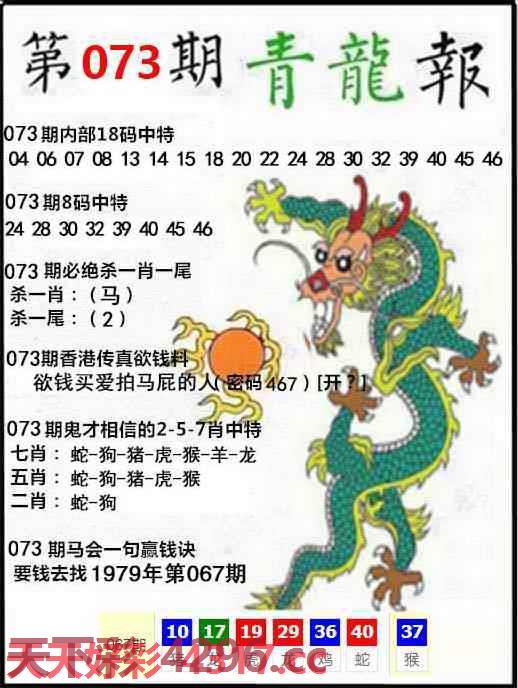 第073期青龍報
073期内部18码中特
04 06 07 08 13 14 15 18 20 22 24 28 30 32 39 40 45 46
073期8码中特
24 28 30 32 39 40 45 46
073期必绝杀一肖一尾
杀一肖：（马）
杀一尾：（2）
073期香港传真欲钱料
欲钱买爱拍马屁的人(密码467)[开?]
073期鬼才相信的2-5-7肖中特
七肖：蛇-狗-猪-虎-猴-羊-龙
五肖：蛇-狗-猪-虎-猴
二肖：蛇-狗
073期马会一句赢钱诀
要钱去找1979年第067期
067期 10 17 19 29 36 40 37
猪 龙 虎 龙 鸡 蛇 猴
天下好彩44296.cc